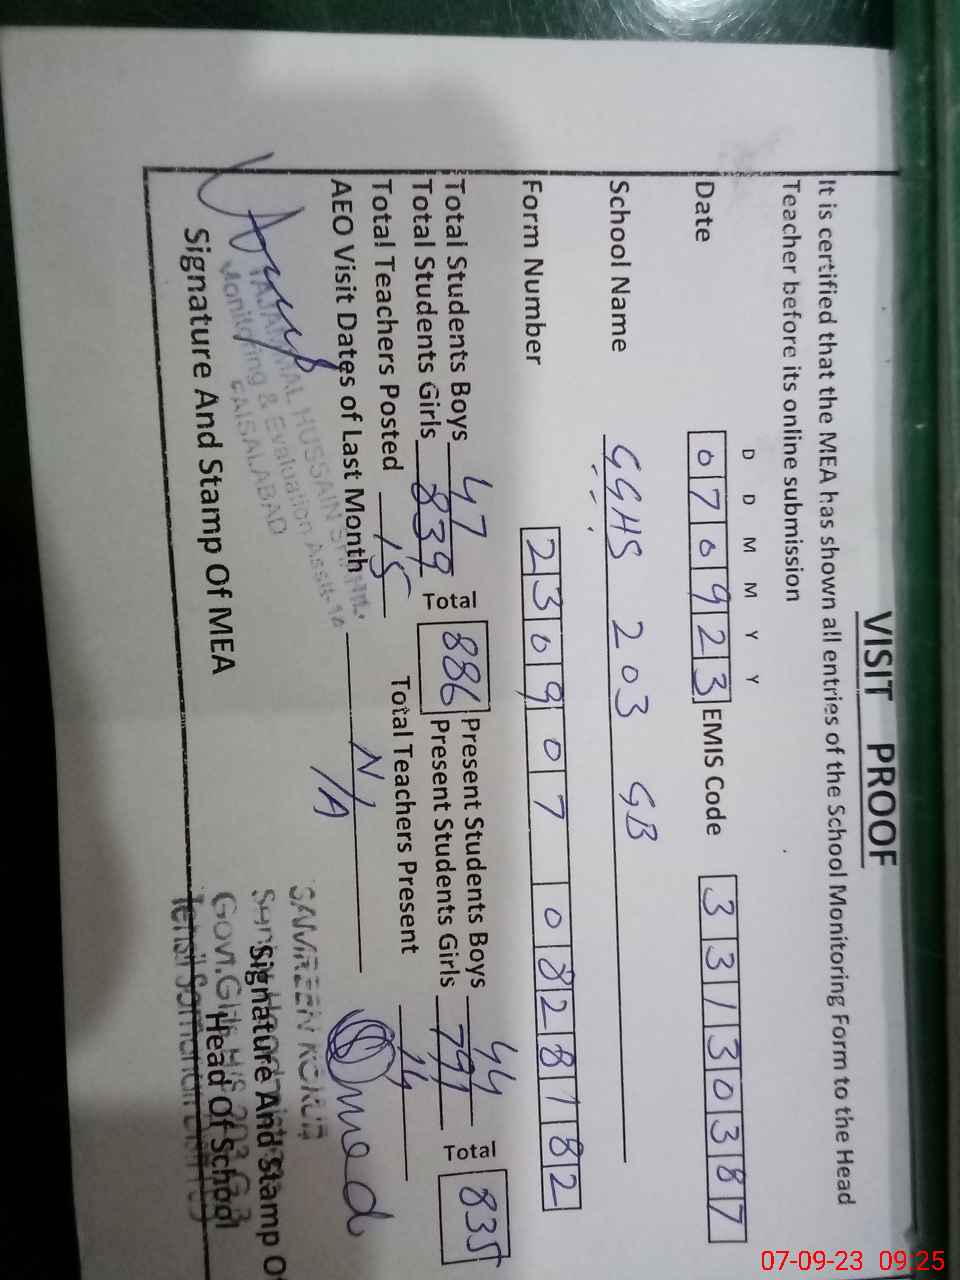 VISIT PROOF
It is certified that the MEA has shown all entries of the School Monitoring Form to the Head
Teacher before its online submission
D D M M Y Y
Date 070923 EMIS Code 33130387
School Name GGHS 203 GB
Form Number 230907 0828182
Total Students Boys 47 Present Students Boys 44
Total Students Girls 839 Total 886 Present Students Girls 791 Total 835
Total Teachers Posted 15 Total Teachers Present 14
AEO Visit Dates of Last Month N/A
TAJAMMAL HUSSAIN
Monitoring & Evaluation Assit-
FAISALABAD
Signature And Stamp Of MEA
Signature And Stamp O
Head Of School
07-09-23 09:25